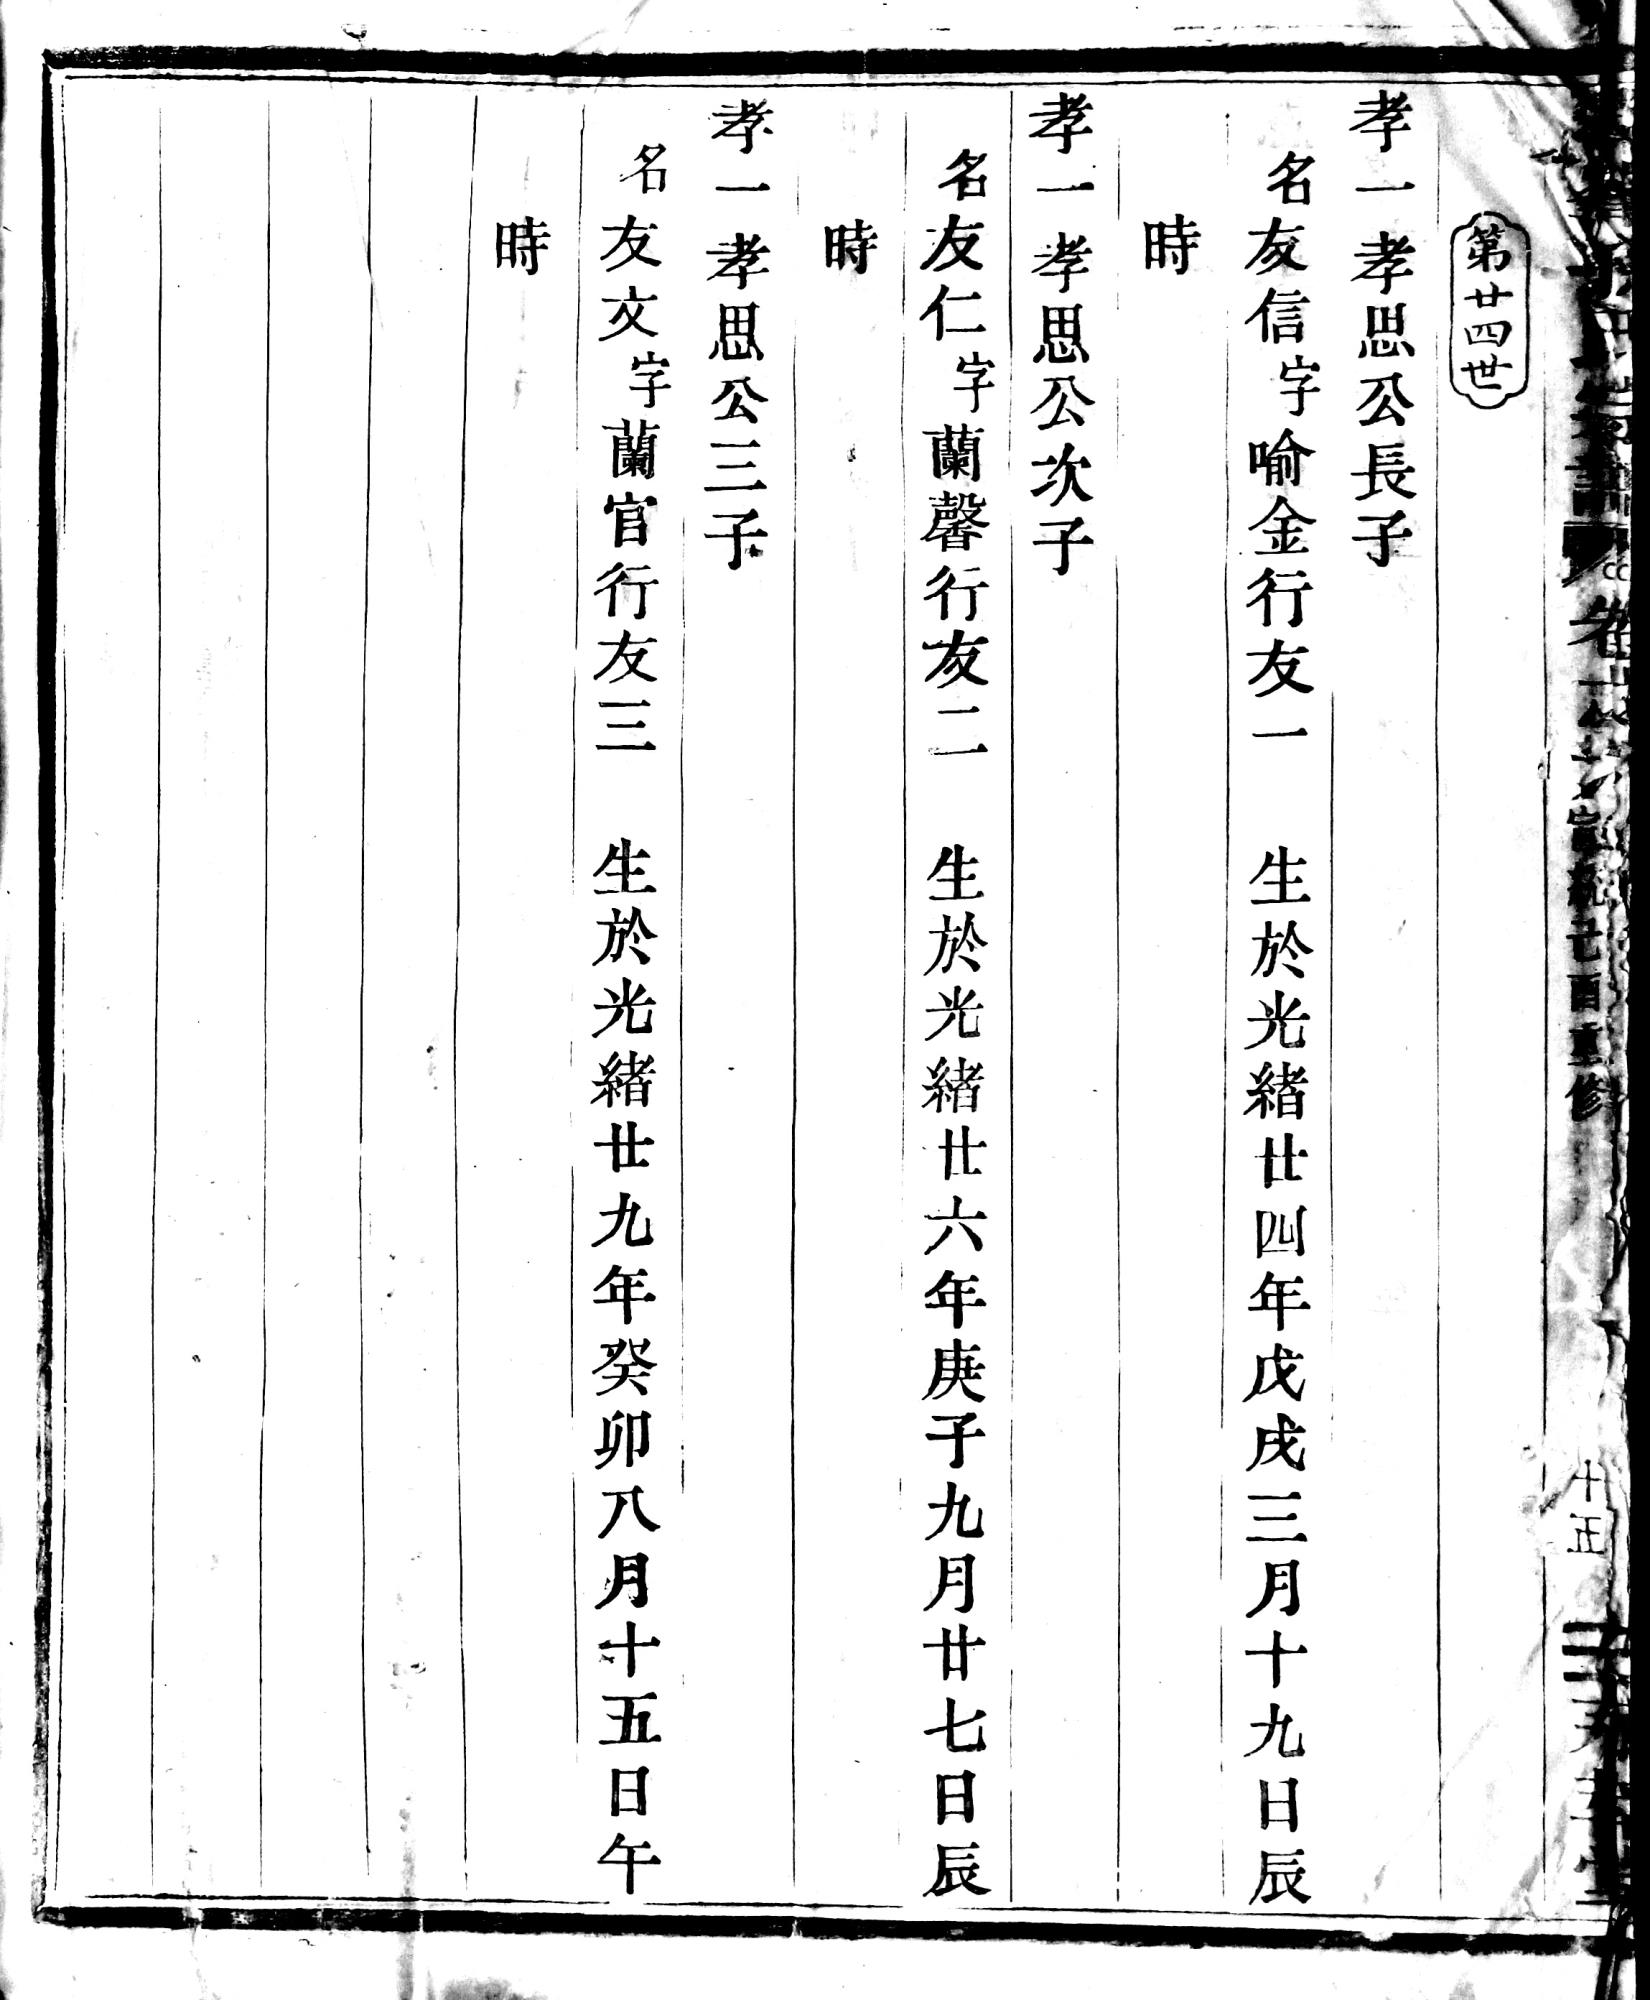 第廿四世
孝一孝思公長子
名友信字喻金行友一　生於光緒廿四年戊戌三月十九日辰
時
孝一孝思公次子
名友仁字蘭馨行友二　生於光緒廿六年庚子九月廿七日辰
時
孝一孝思公三子
名友文字蘭官行友三　生於光緒廿九年癸卯八月十五日午
時
卷
統己酉重修
十五